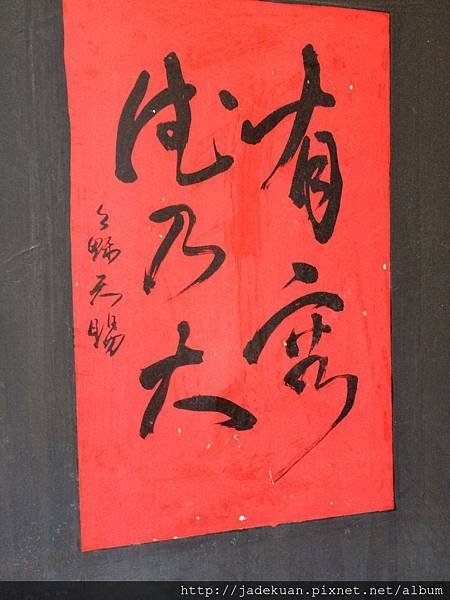 有容
德乃大
天賜
http://jadekuan.pixnet.net/album